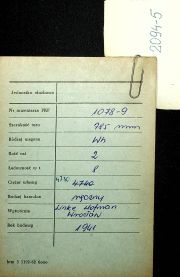 2094-5
Jednostka służbowa
Nr inwentarza PKP 1078-9
Szerokość toru 785 mm
Rodzaj wagonu Wh
Ilość osi 2
Ładowność w t 8
Ciężar własny 4740
Rodzaj hamulca ręczny
Wytwórnia Linke Hofman
Wrocław
Rok budowy 1941